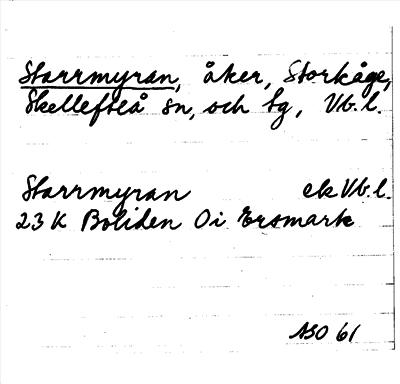 Starrmyran, åker, Storkåge,
Skellefteå sn, och tg, Vb. l.
Starrmyran ek Vb. l.
23 K Boliden 0i Ersmark
ASO 61